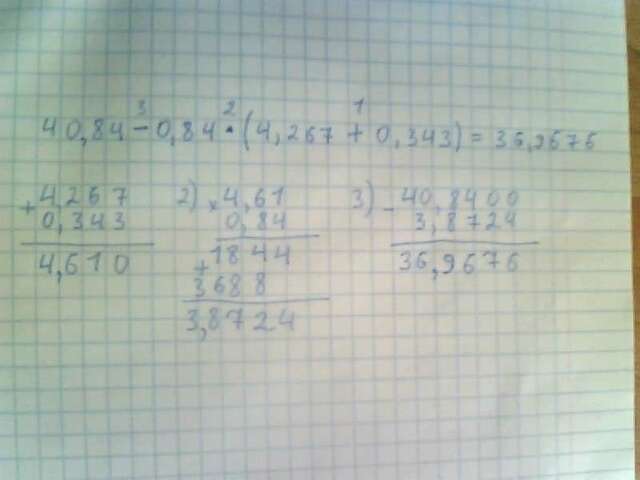 3 2 1
40,84 - 0,84 · (4,267 + 0,343) = 36,9676
+ 4,267
0,343
4,610
2) × 4,61
0,84
1844
+
3688
3,8724
3) - 40,8400
3,8724
36,9676